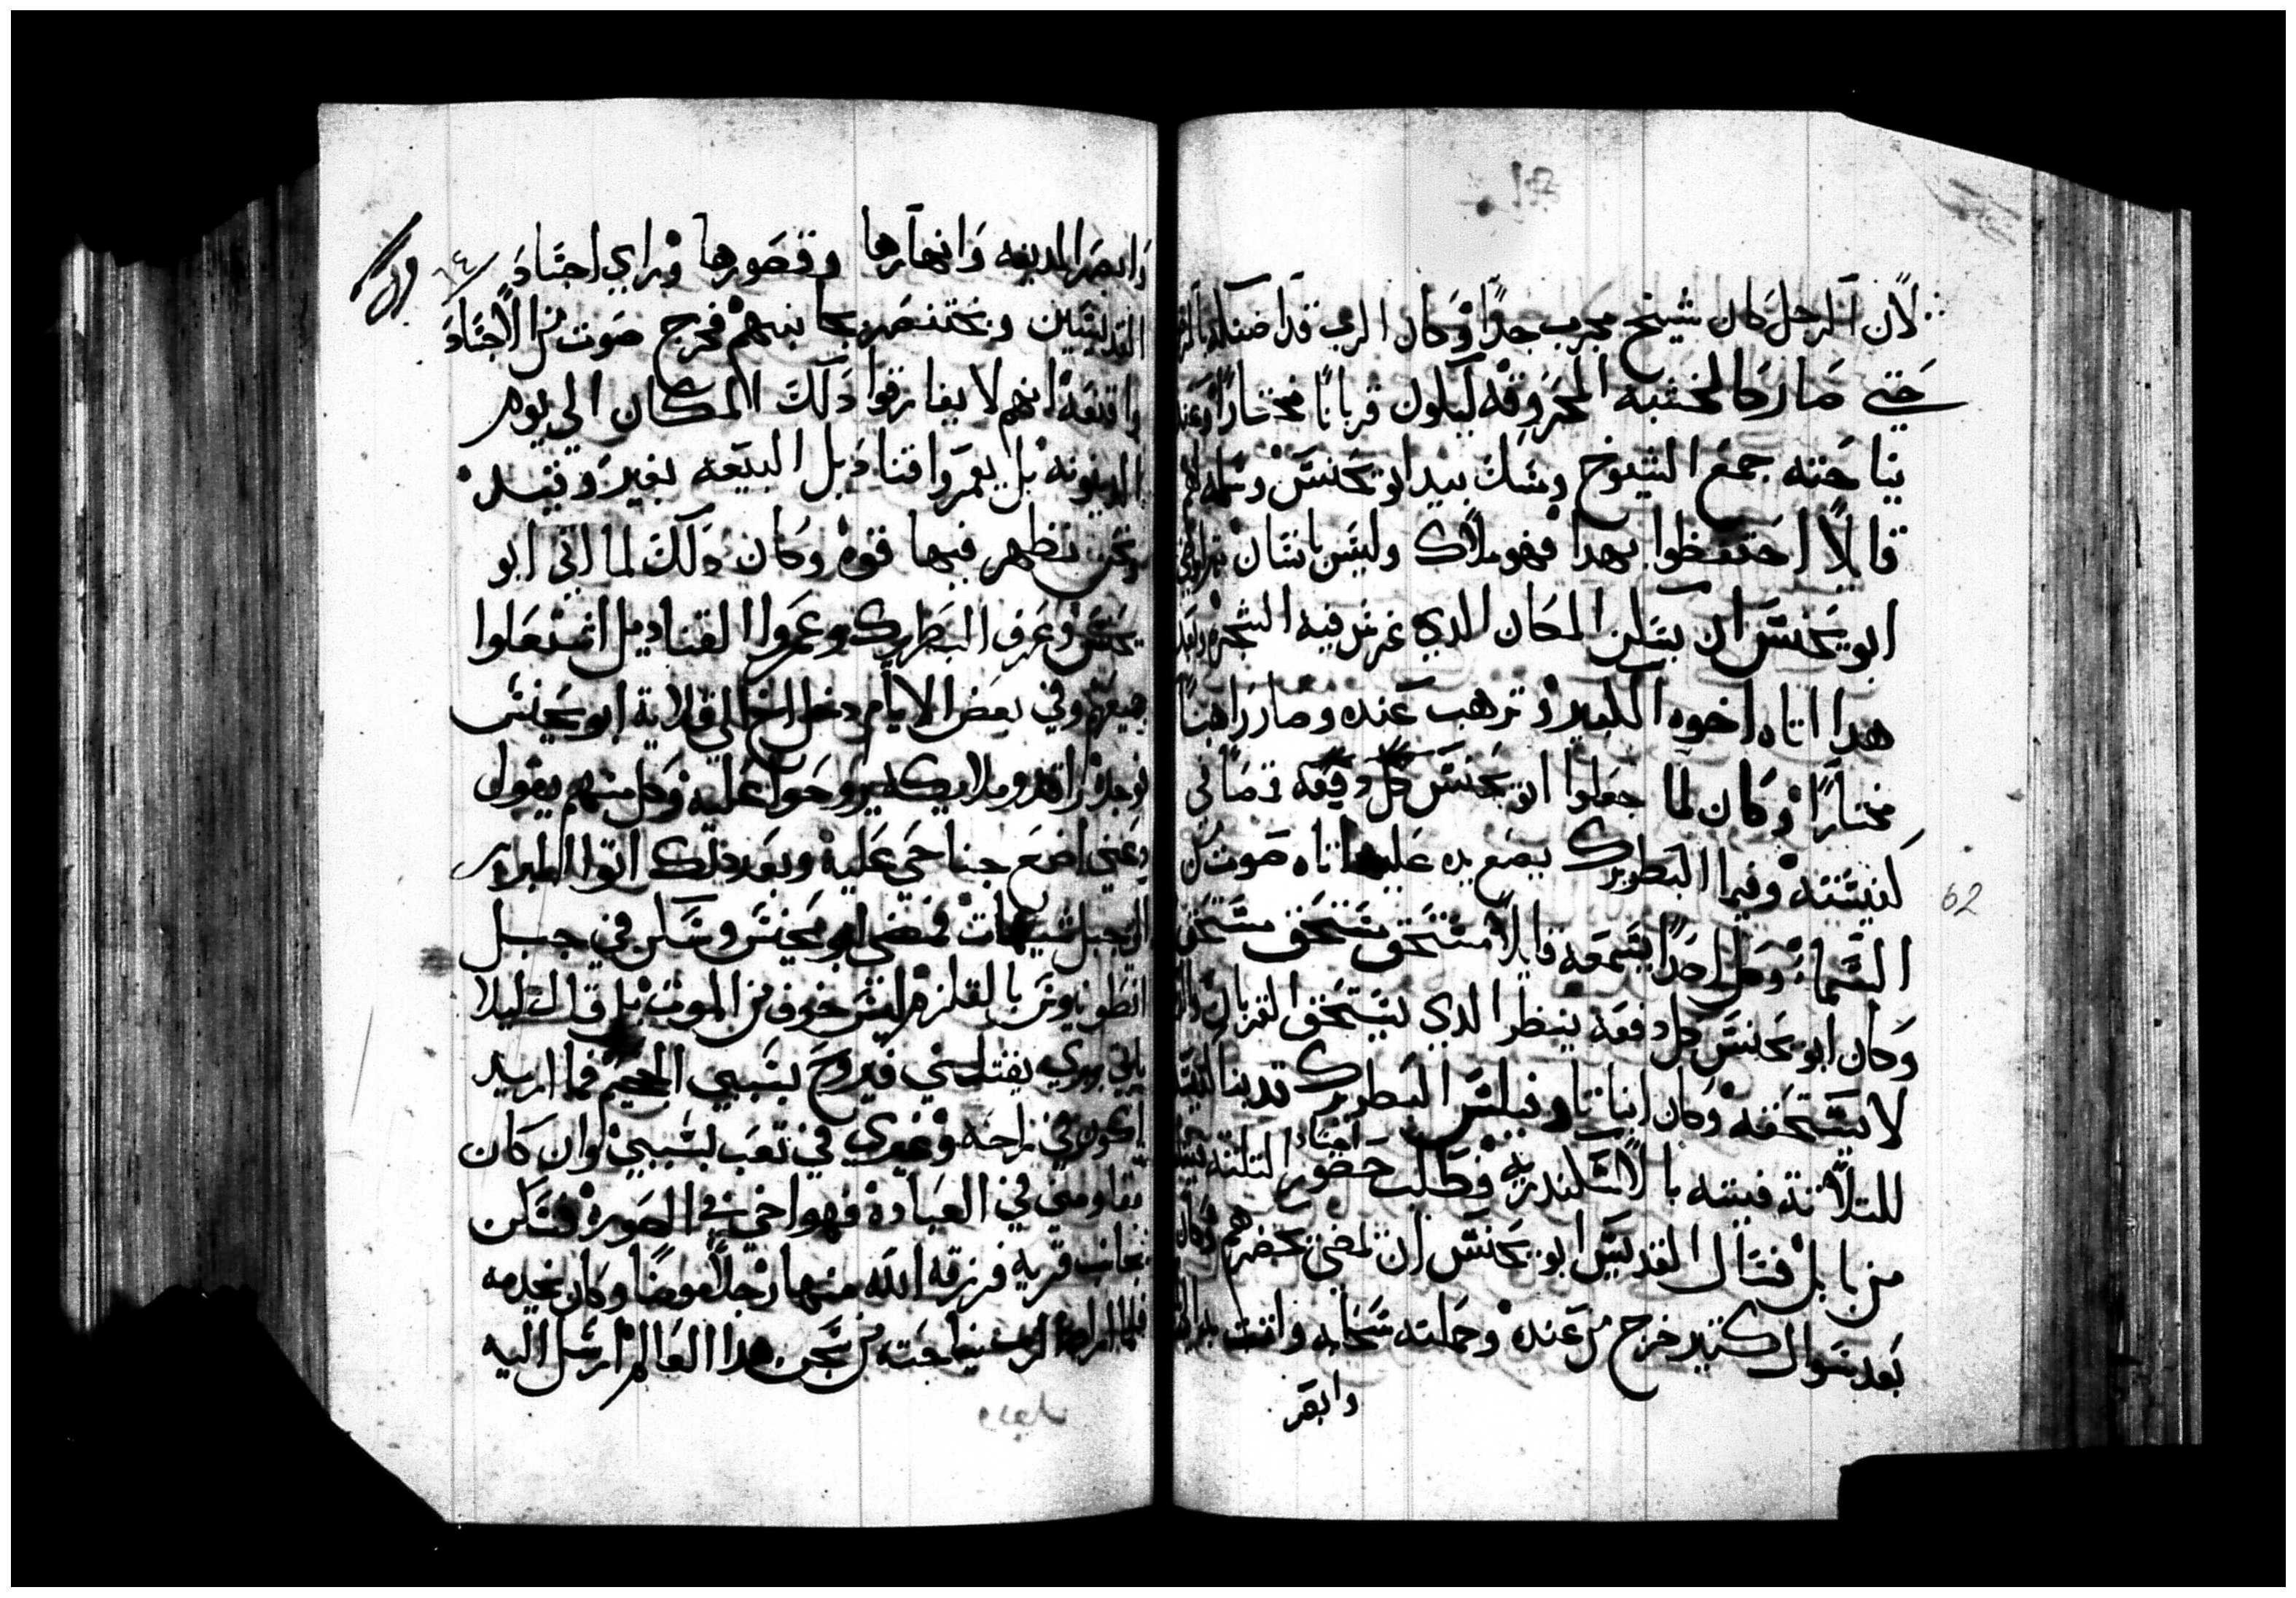 لان الرجل كان شيخ مجرب جدًا وكان الرب قد اضناه بالمرض
حتي صار كالخشبه المحروقه ليكون قربانًا مختارًا وعند
نياحته جمع الشيوخ ومسك بيد ابو يحنس وسلمه لهم
قايلًا احتفظوا بهدا فهو ملاك وليس بانسان
ابو يحنس ان يسكن المكان الدي غرس فيه الشجره وبعد
هدا اتاه اخوه الكبير وترهب عنده وصار راهبًا
مختارًا وكان لما جعلوا ابو يحنس قمصًا في
كنيسته وفيما البطريرك يضع يده عليه اتاه صوت من
السماء وكل احدًا يسمعه قايلًا مستحق مستحق مستحق
وكان ابو يحنس كل دفعه ينظر الدي يستحق القربان والدي
لا يستحقه وكان انبا تاوفيلس البطريرك قد بنا كنيسه
للتلاتة فتيه بالاسكندريه فطلب حضور اجساد التلته فتيه
من بابل فسال القديس ابو يحنس ان يمضي يحضرهم وكان
بعد سوال كتير خرج من عنده وحملته سحابه واتت به الي بابل
وابصر
62
وابصر المدينه وانهارها وقصورها وراي اجساد
٦٤
القديسين وبختنصر بجانبهم فخرج صوت من الاجساد
وانبعه انهم لا يفارقوا دلك المكان الي يوم
الدينونه بل يعمروا قناديل البيعه بغير وقيد
ونحن نظهر فيها قوه وكان دلك لما اتي ابو
يحنس وعرف البطريرك وعمروا القناديل اشتعلوا
جميعهم وفي بعض الايام دخل اخ الي قلاية ابو يحنس
فوجده راقد وملايكه يروحوا عليه وكل منهم يقول
دعني اضع جناحي عليه وبعد دلك اتوا البربر
الي جبل شيهات فمضي ابو يحنس وسكن في جبل
انطونيوس بالقلزم ليس خوف من الموت بل قال ليلا
ياتي بربري يقتلني فيروح بسببي الجحيم فما اريد
اكون في راحه وغيري في تعب بسببي وان كان
يقاومني في العباده فهو اخي في الصوره فسكن
بجانب قريه فرزقه الله منها رجلًا مومنًا وكان يخدمه
فلما اراد الرب نياحته من سجن هدا العالم ارسل اليه